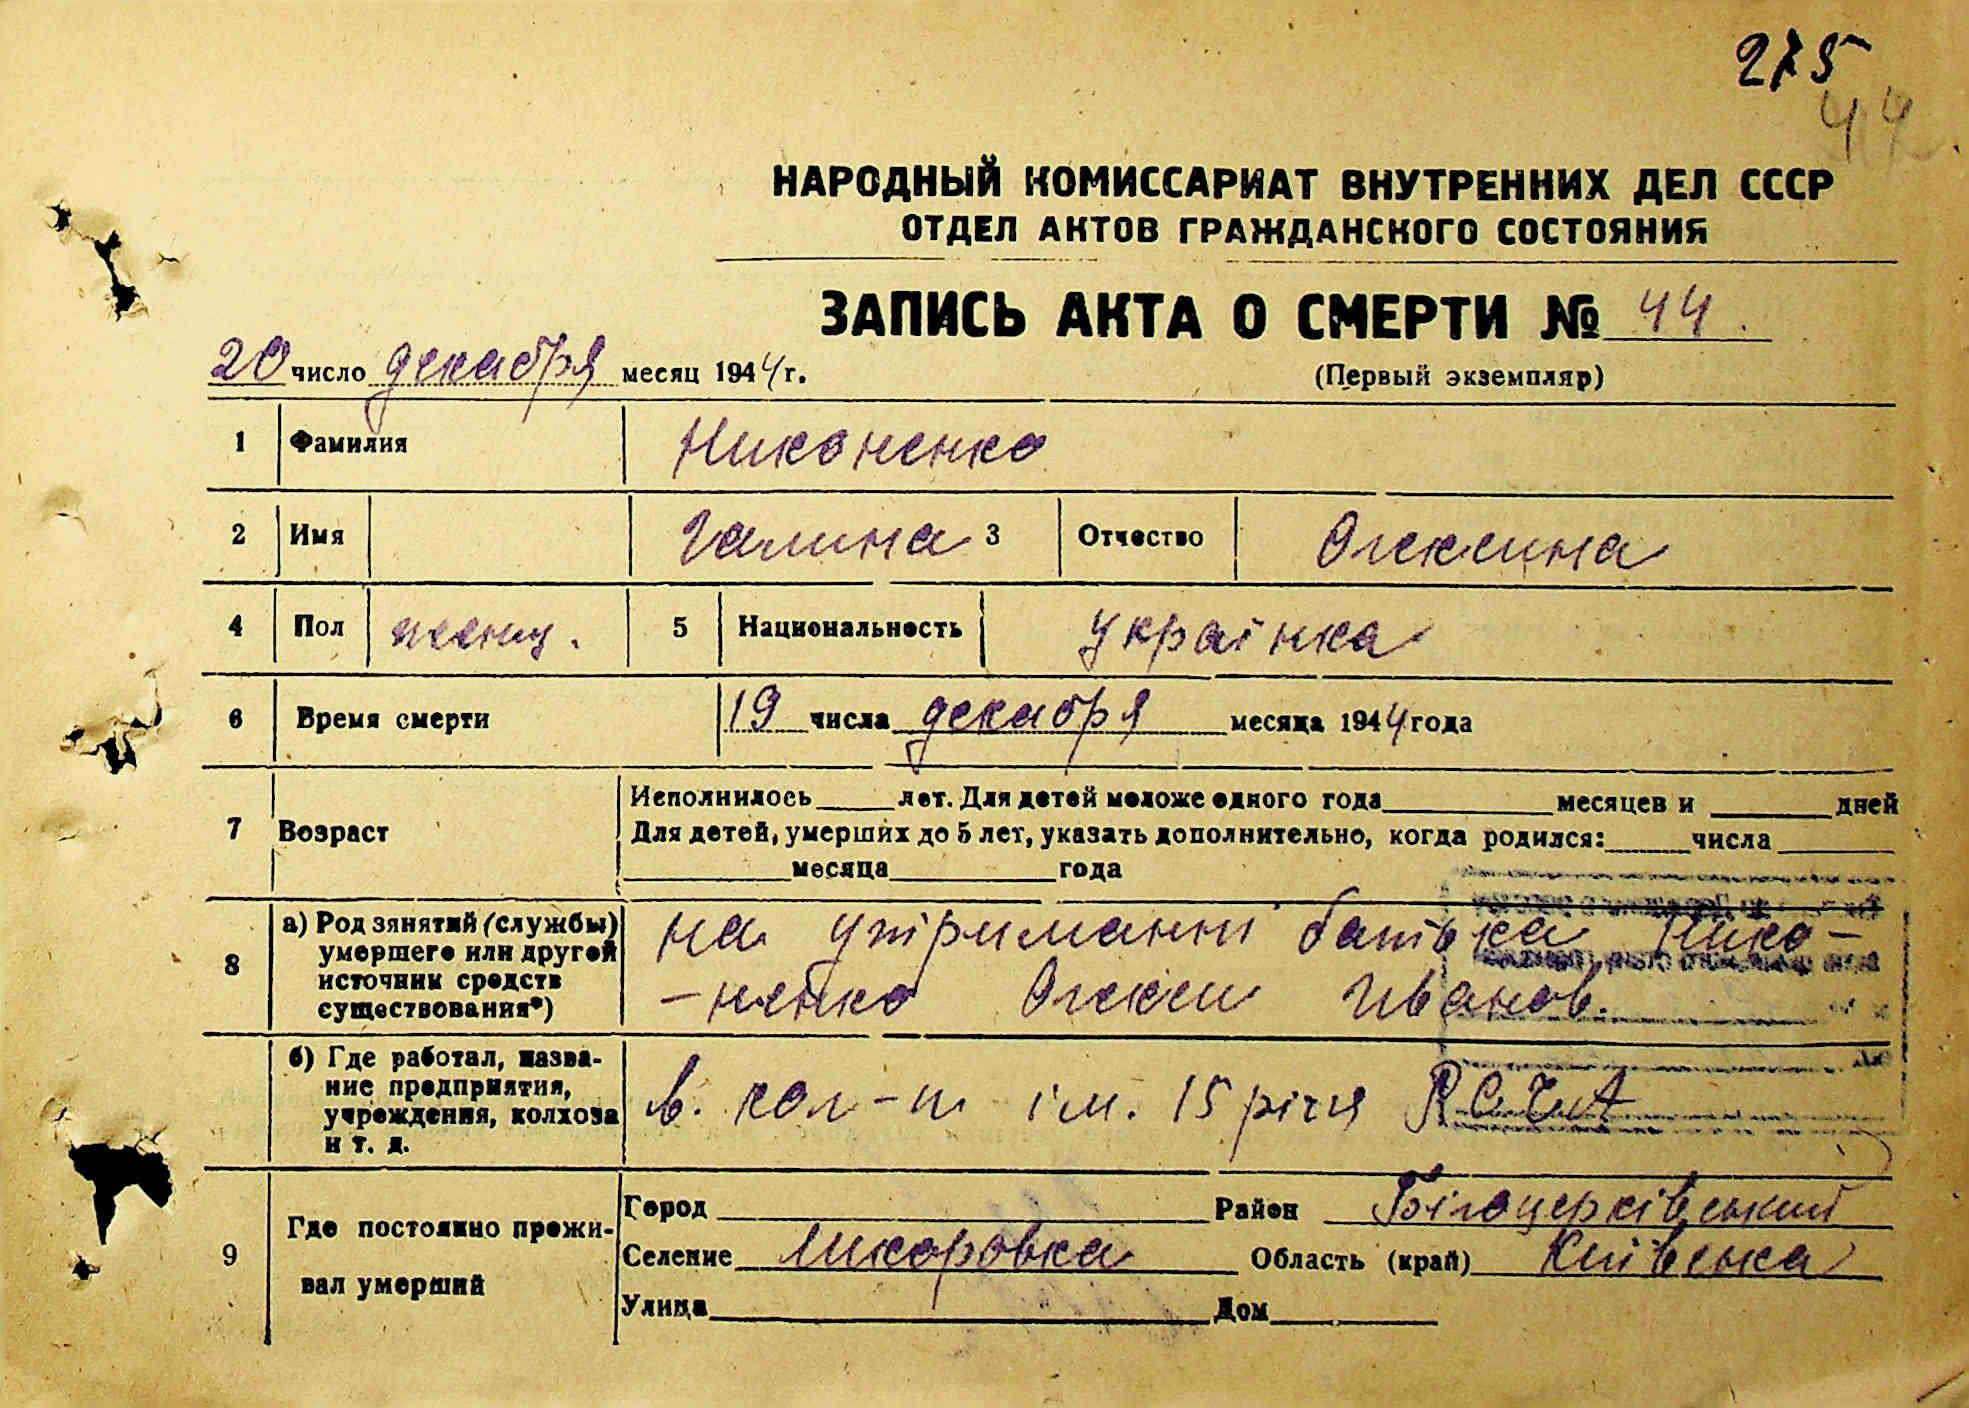 275
44
НАРОДНЫЙ КОМИССАРИАТ ВНУТРЕННИХ ДЕЛ СССР
ОТДЕЛ АКТОВ ГРАЖДАНСКОГО СОСТОЯНИЯ
ЗАПИСЬ АКТА О СМЕРТИ № 44.
20 число декабря месяц 1944 г.
(Первый экземпляр)
1 Фамилия Никоненко
2 Имя Галина 3 Отчество Олексіина
4 Пол женщ. 5 Национальность українка
6 Время смерти 19 числа декабря месяца 1944 года
7 Возраст
Исполнилось лет. Для детей моложе одного года месяцев и дней
Для детей, умерших до 5 лет, указать дополнительно, когда родился: числа
месяца года
8 а) Род зянятий (службы) умершего или другой источник средств существования*)
на утриманні батька Нико-
-ненко Олексіи Иванов.
б) Где работал, название предприятия, учреждения, колхоза и т. д.
в. кол-п ім. 15 річя Р.С.Ч.А
9 Где постоянно проживал умерший
Город Район Білоцерківський
Селение Область (край) Київська
Улица Дом